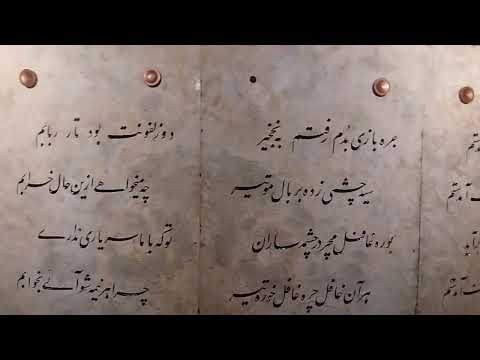 جره بازی بُدم رفتم بنخجیر
سیه چشمی زده بر بال مو تیر
بوره غافل مچر در چشمه ساران
هر آن غافل چره غافل خوره تیر
دو زلفونت بود تار ربابم
چه میخواهی ازین حال خرابم
تو که با ما سر یاری نداری
چرا هر نیمه شو آئی بخوابم